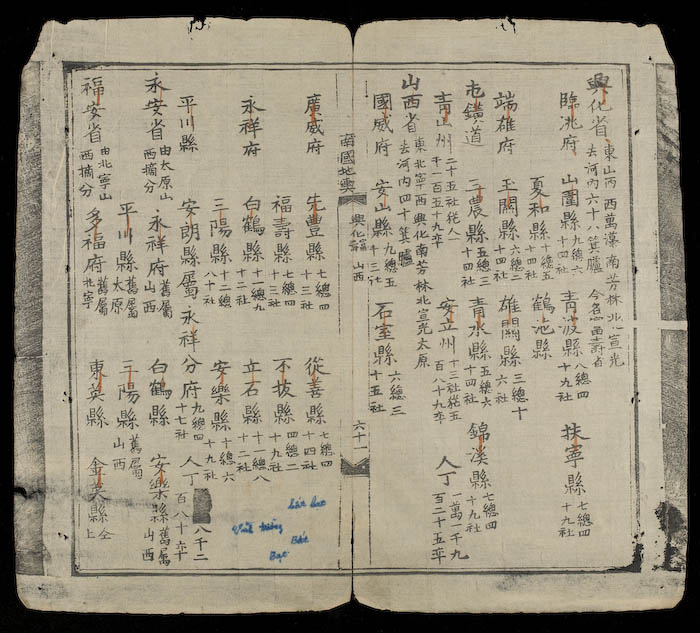 興化省 東山西 西萬 南芳林 北宣光 去河內六十八箕臚 今名富壽省
臨洮府 山圍縣 九總六十四社 青波縣 八總四十九社 扶寧縣 七總四十九社
夏和縣 十總五十四社 鶴池縣
端雄府 玉關縣 六總二十四社 雄關縣 三總十六社
屯鑛道 三農縣 五總三十四社 青水縣 五總六十四社 錦溪縣 七總四十九社
青山州 二十五社總人一千一百五十九卒 安立州 十三社總五百八十九卒 人丁 一萬一千九百二十五卒
山西省 東北寧西興化南芳林北宣光太原 去河內四十箕臚
國威府 安山縣 九總五十三社 石室縣 六總三十五社
南國地輿 興化 山西 六十一
廣威府 先豐縣 七總四十三社 從善縣 七總四十四社
福壽縣 七總四十三社 不拔縣 四總二十九社
永祥府 白鶴縣 十一總九十社 立石縣 十一總八十二社
三陽縣 十二總八十社 安樂縣 十總六十九社
平川縣 安朗縣屬永祥分府 九總四十七社 人丁 八千二百八十六卒
永安省 由太原山西摘分 永祥府 舊屬山西 白鶴縣 安樂縣 舊屬山西
平川縣 舊屬太原 三陽縣 舊屬山西
福安省 由北寧山西摘分 多福府 舊屬北寧 東英縣 金英縣 全上
bất bạt
Vĩnh tường
Bất
Bạt